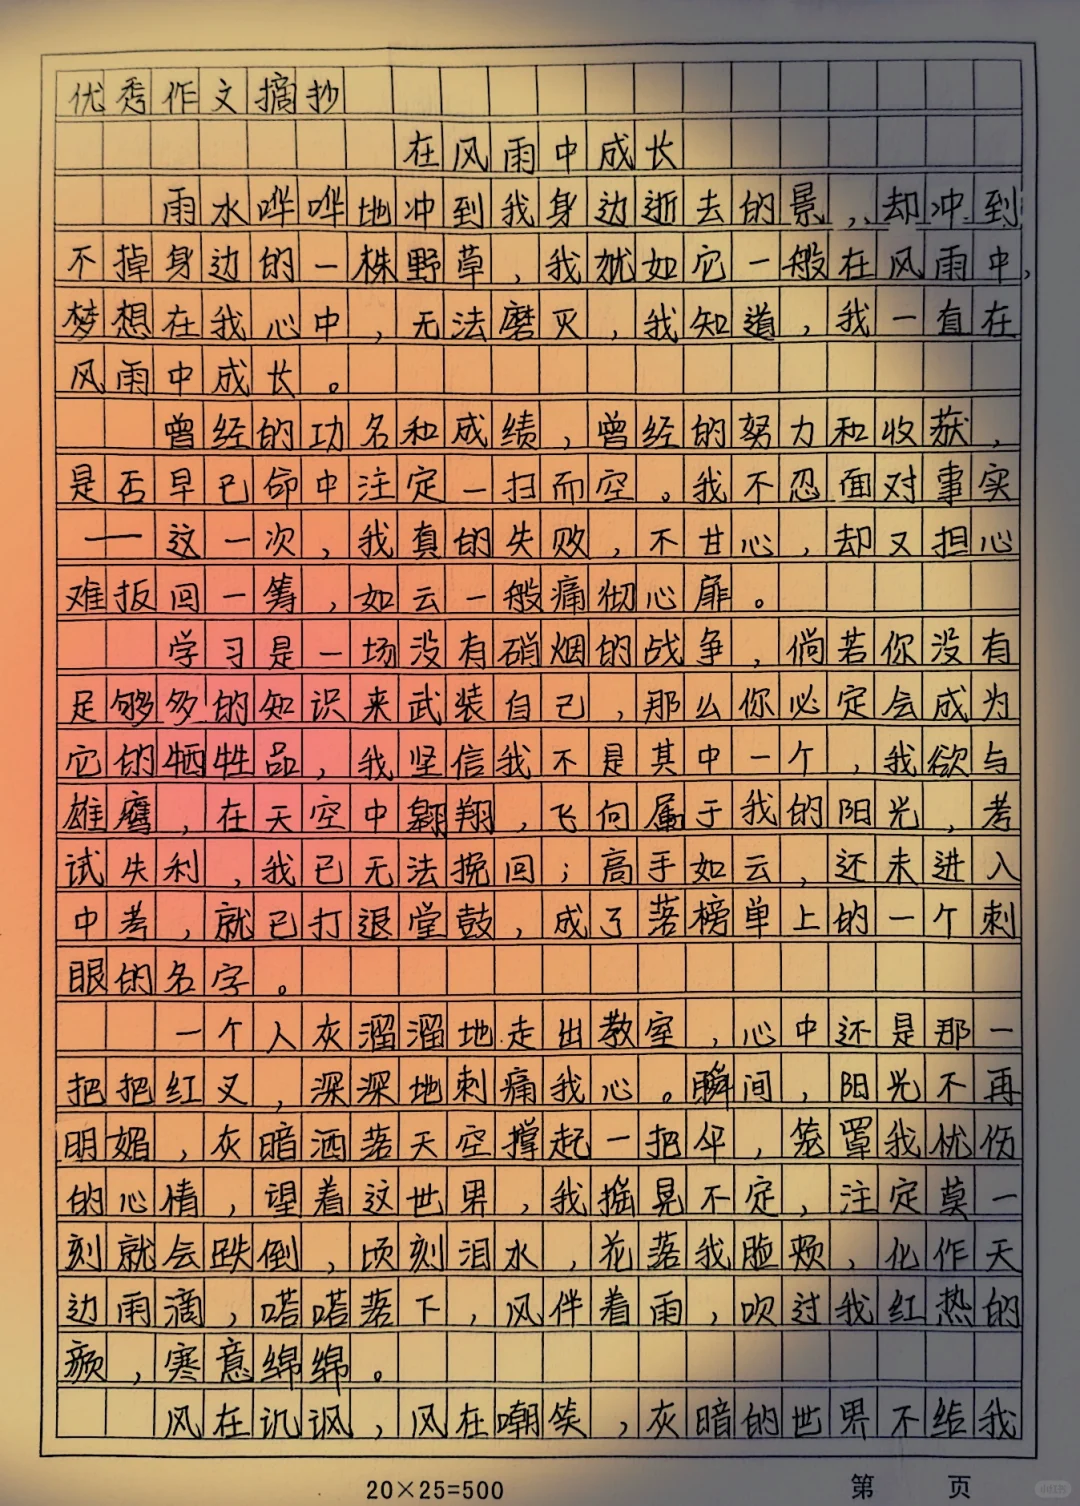 优秀作文摘抄
在风雨中成长
雨水哗哗地冲到我身边逝去的景，却冲到
不掉身边的一株野草，我就如它一般在风雨中，
梦想在我心中，无法磨灭，我知道，我一直在
风雨中成长。
曾经的功名和成绩，曾经的努力和收获，
是否早已命中注定一扫而空。我不忍面对事实
——这一次，我真的失败，不甘心，却又担心
难扳回一筹，如云一般痛彻心扉。
学习是一场没有硝烟的战争，倘若你没有
足够多的知识来武装自己，那么你必定会成为
它的牺牲品，我坚信我不是其中一个，我欲与
雄鹰，在天空中翱翔，飞向属于我的阳光，考
试失利，我已无法挽回；高手如云，还未进入
中考，就已打退堂鼓，成了落榜单上的一个刺
眼的名字。
一个人灰溜溜地走出教室，心中还是那一
把把红叉，深深地刺痛我心。瞬间，阳光不再
明媚，灰暗洒落天空撑起一把伞，笼罩我忧伤
的心情，望着这世界，我摇晃不定，注定莫一
刻就会跌倒，顷刻泪水，花落我脸颊，化作天
边雨滴，嗒嗒落下，风伴着雨，吹过我红热的
颜，寒意绵绵。
风在讥讽，风在嘲笑，灰暗的世界不给我
20×25=500
第 页